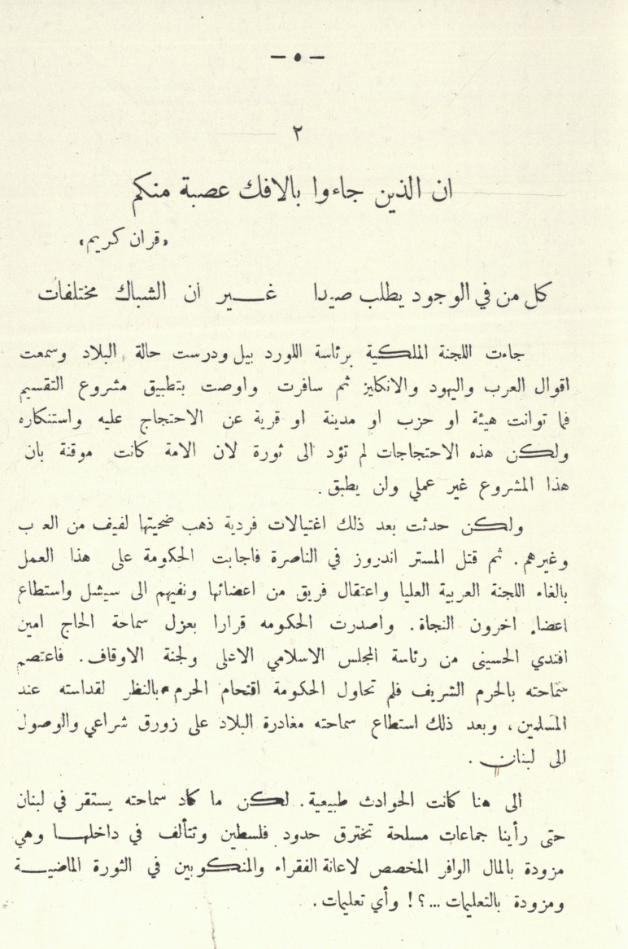 — ٥ —
٢
ان الذين جاءوا بالافك عصبة منكم
«قران كريم»
كل من في الوجود يطلب صيدا غـــير ان الشباك مختلفات
جاءت اللجنة الملكية برئاسة اللورد بيل ودرست حالة البلاد وسمعت
اقوال العرب واليهود والانكليز ثم سافرت واوصت بتطبيق مشروع التقسيم
فما توانت هيئة او حزب او مدينة او قرية عن الاحتجاج عليه واستنكاره
ولكن هذه الاحتجاجات لم تؤد الى ثورة لان الامة كانت موقنة بان
هذا المشروع غير عملي ولن يطبق.
ولكن حدثت بعد ذلك اغتيالات فردية ذهب ضحيتها لفيف من العرب
وغيرهم. ثم قتل المستر اندروز في الناصرة فاجابت الحكومة على هذا العمل
بالغاء اللجنة العربية العليا واعتقال فريق من اعضائها ونفيهم الى سيشل واستطاع
اعضاء اخرون النجاة. واصدرت الحكومه قرارا بعزل سماحة الحاج امين
افندي الحسيني من رئاسة المجلس الاسلامي الاعلى ولجنة الاوقاف. فاعتصم
سماحته بالحرم الشريف فلم تحاول الحكومة اقتحام الحرم بالنظر لقداسته عند
المسلمين، وبعد ذلك استطاع سماحته مغادرة البلاد على زورق شراعي والوصول
الى لبنان.
الى هنا كانت الحوادث طبيعية. لكن ما كاد سماحته يستقر في لبنان
حتى رأينا جماعات مسلحة تخترق حدود فلسطين وتتألف في داخلهـا وهي
مزودة بالمال الوافر المخصص لاعانة الفقراء والمنكوبين في الثورة الماضيـة
ومزودة بالتعليمات ...؟! وأي تعليمات.